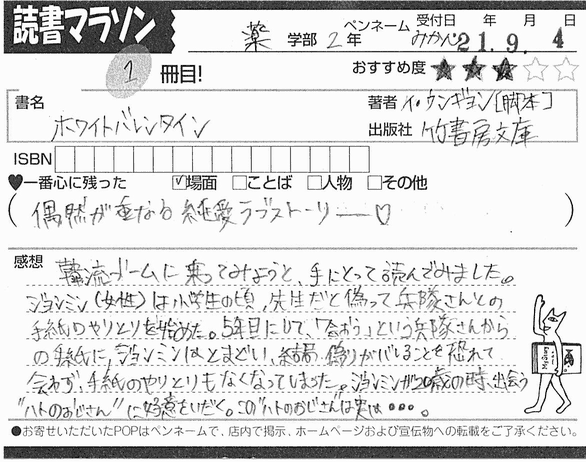 読書マラソン
薬 学部 2 年 ペンネーム みかん 受付日 21 年 9 月 4 日
1 冊目! おすすめ度 ★★★☆☆
書名 ホワイトバレンタイン
著者 イ・ウンギョン[脚本]
出版社 竹書房文庫
ISBN
♥一番心に残った ☑場面 □ことば □人物 □その他
(偶然が重なる純愛ラブストーリー♡)
感想 韓流ブームに乗ってみようと、手にとって読んでみました。
ジョンミン(女性)は小学生の頃、先生だと偽って兵隊さんとの
手紙のやりとりを始めた。5年目にして、「会おう」という兵隊さんから
の手紙に、ジョンミンはとまどい、結局 偽りがバレることを恐れて
会わず、手紙のやりとりもなくなってしまった。ジョンミンが20歳の時、出会う
"ハトのおじさん"に好意をいだく。この"ハトのおじさん"は実は・・・。
●お寄せいただいたPOPはペンネームで、店内で掲示、ホームページおよび宣伝物への転載をご了承ください。